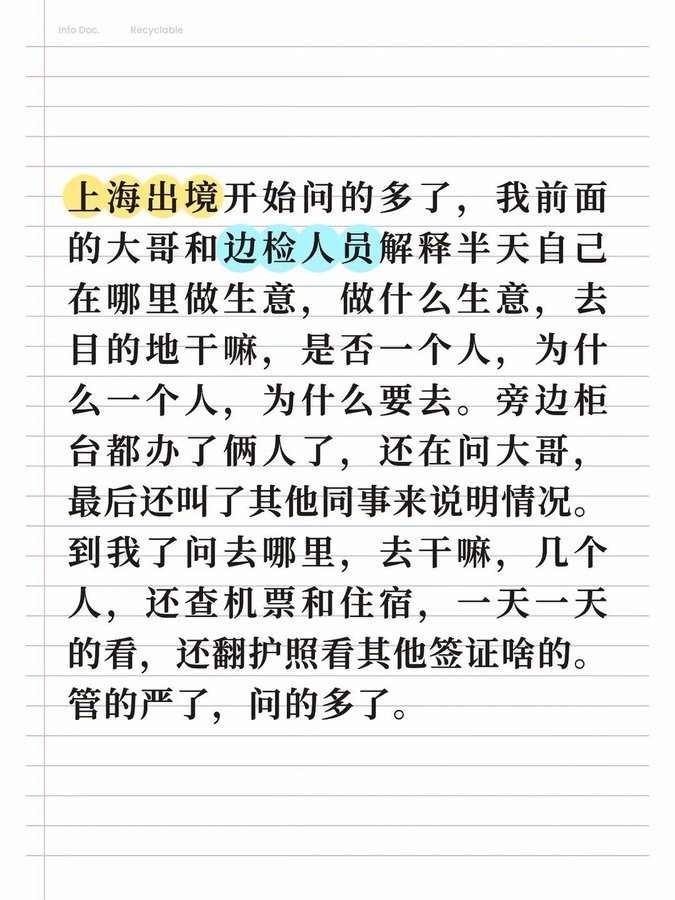 Info Doc. Recyclable
上海出境开始问的多了，我前面
的大哥和边检人员解释半天自己
在哪里做生意，做什么生意，去
目的地干嘛，是否一个人，为什
么一个人，为什么要去。旁边柜
台都办了俩人了，还在问大哥，
最后还叫了其他同事来说明情况。
到我了问去哪里，去干嘛，几个
人，还查机票和住宿，一天一天
的看，还翻护照看其他签证啥的。
管的严了，问的多了。